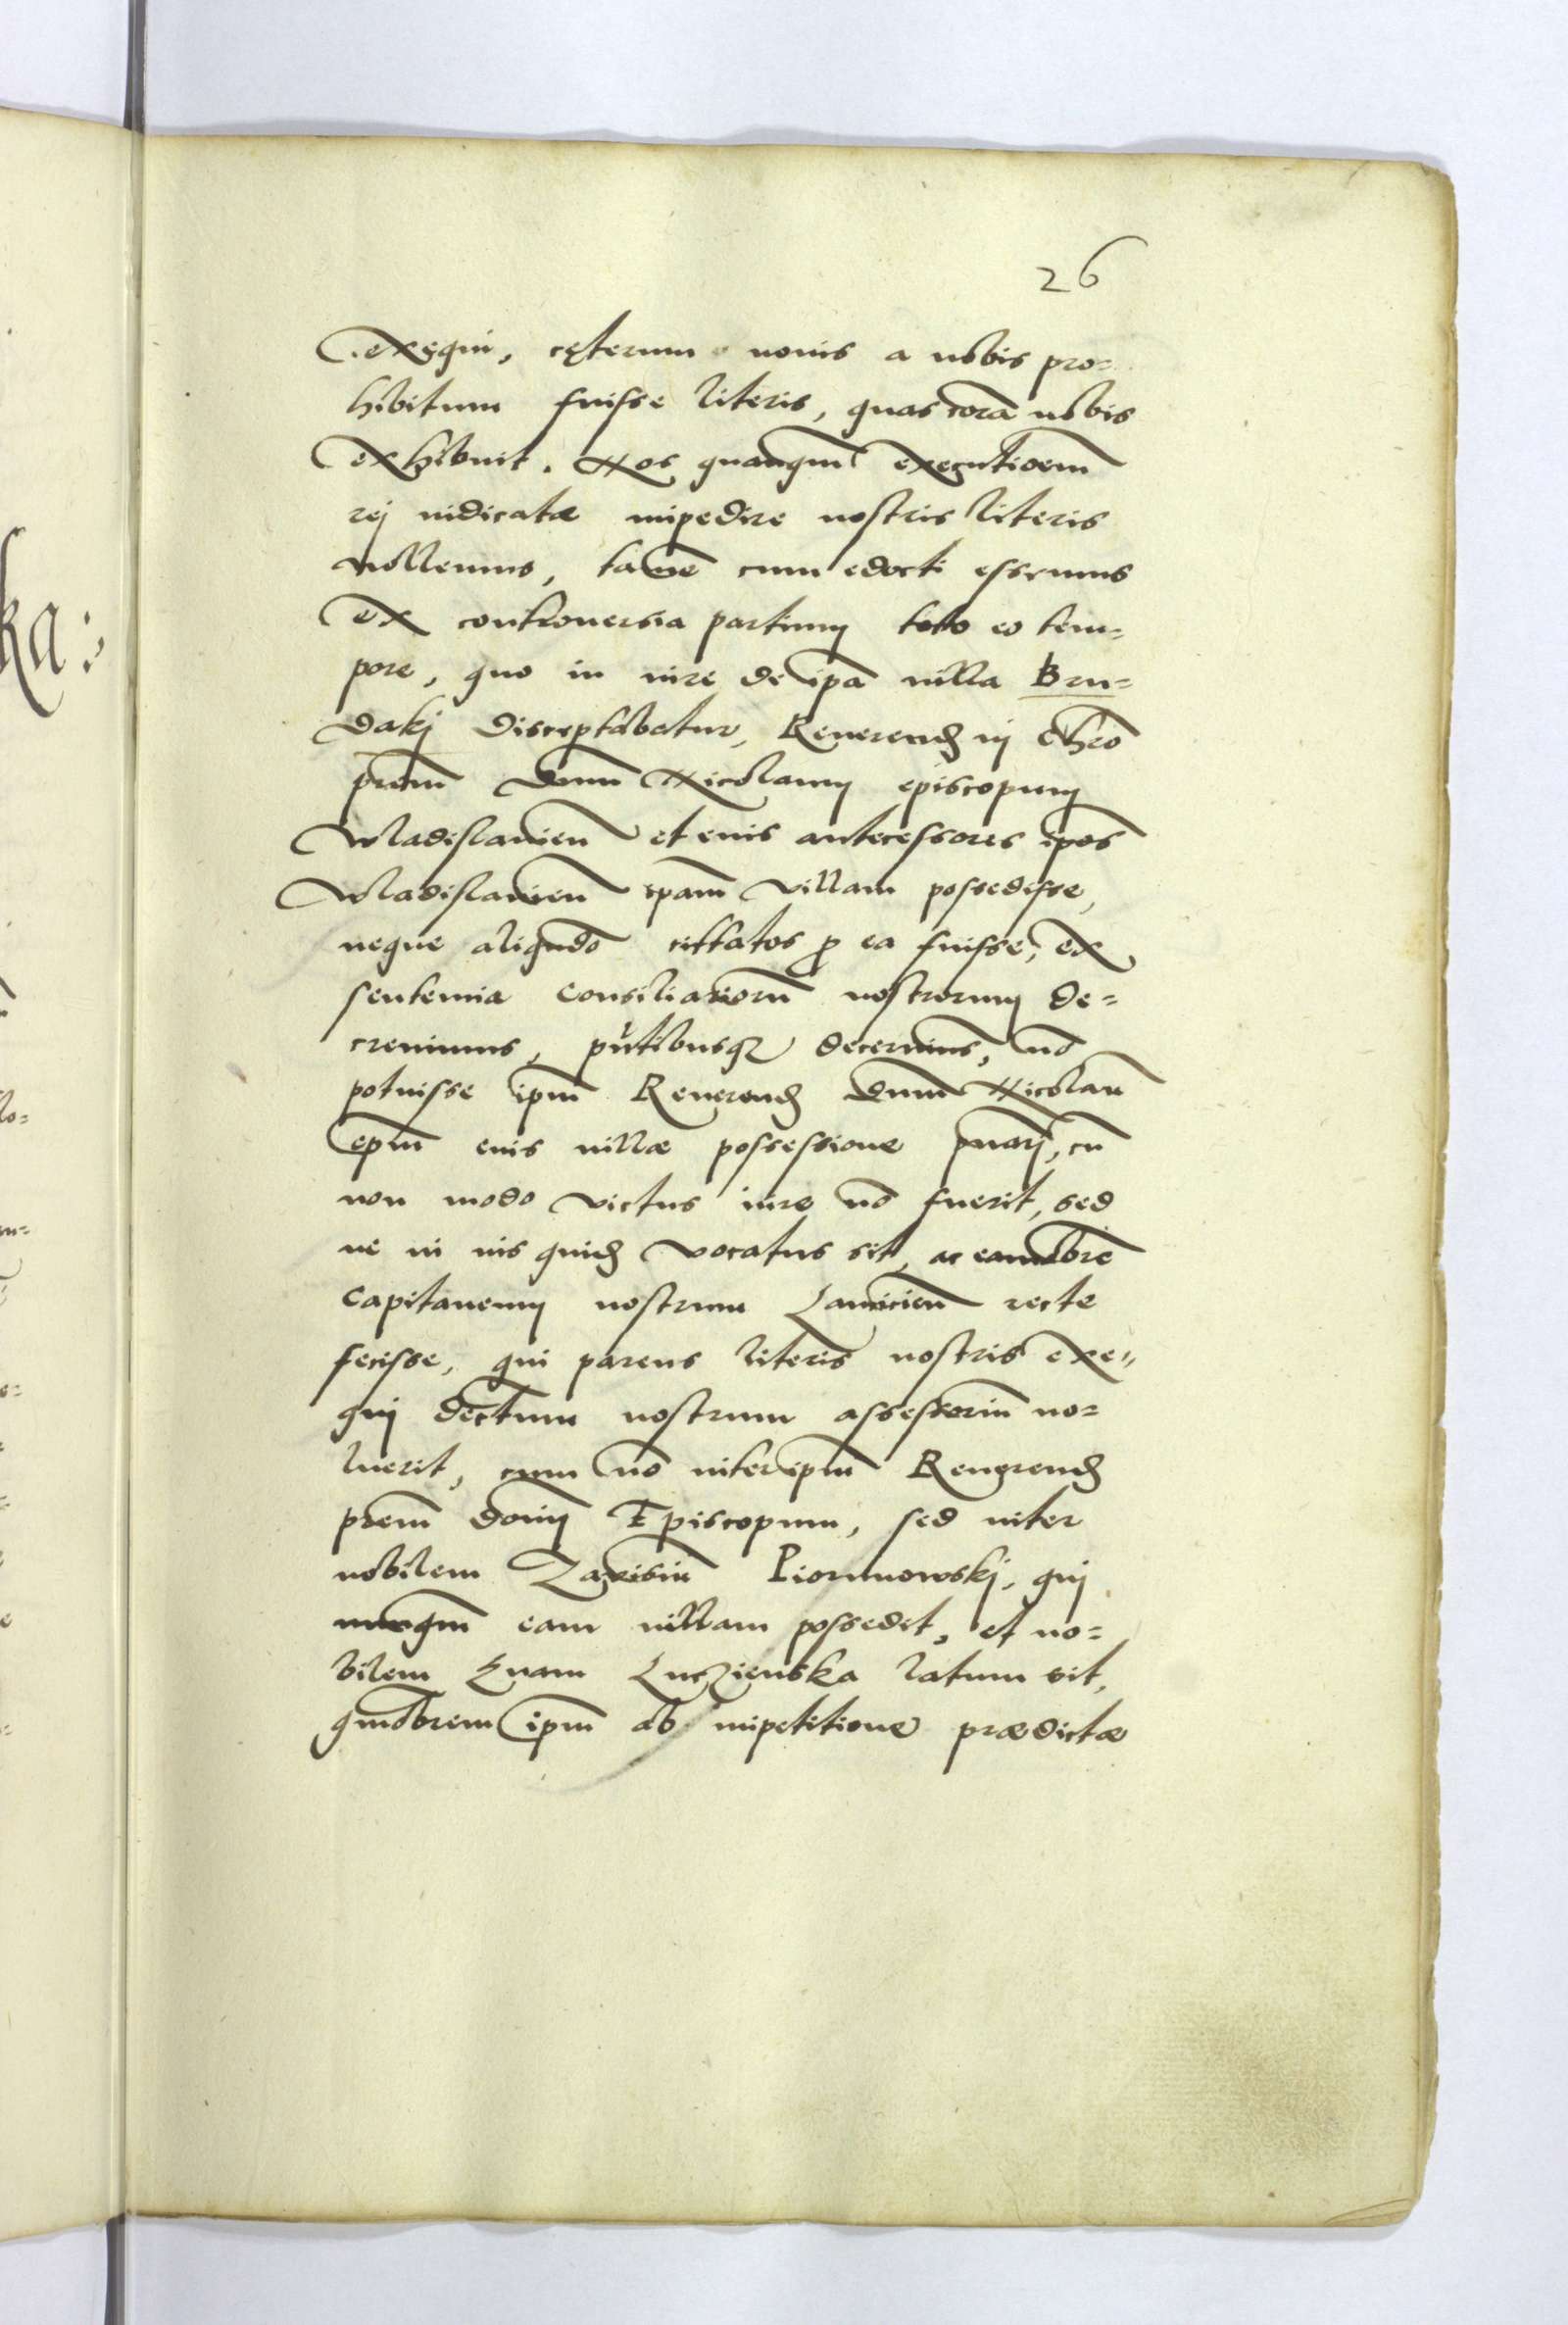 26
exequi, cęterum nouis a nobis pro=
hibitum fuisse literis, quas corā nobis
exhibuit. Nos quanqm̄ executioem̄
rej iudicatæ impedire nostris literis
nollemus, tamē cum edocti essemus
ex controuersia partium toto eo tem=
pore, quo in iure de ipā uilla Bru=
dakj disceptabatur, Reuerend in Chrō
prem̄ dnum Nicolaum episcopum
Wladislauien̄ et eius antecessores ipos̄
Wladislauien̄ ipam̄ villam possedisse,
neque aliqndō cittatos p ea fuisse, ex
sententia Consiliariorū nostrorum de=
creuimus, pn̄tibusq decernims̄, nō
potuisse ipm̄ Reuerend dnum̄ Nicolaū
epm̄ eius uillæ possessione priuarj, cū
non modo victus iure nō fuerit, sed
ne in ius quid vocatus sit, ac eamobrē
Capitaneum nostrum Lancicien̄ recte
fecisse, qui parens literis nostris exe=
qui dectum̄ nostrum assessoriū no=
luerit, cum nō inter ipm̄ Reuerend
prem̄ domin̄ Episcopum, sed inter
nobilem Zavisiū Piorunowskj, qui
nunqm̄ eam uillam possedit, et no=
bilem Euam Luczienska latum sit,
qmobrem ipm̄ ab impetitione prædictæ
ka: